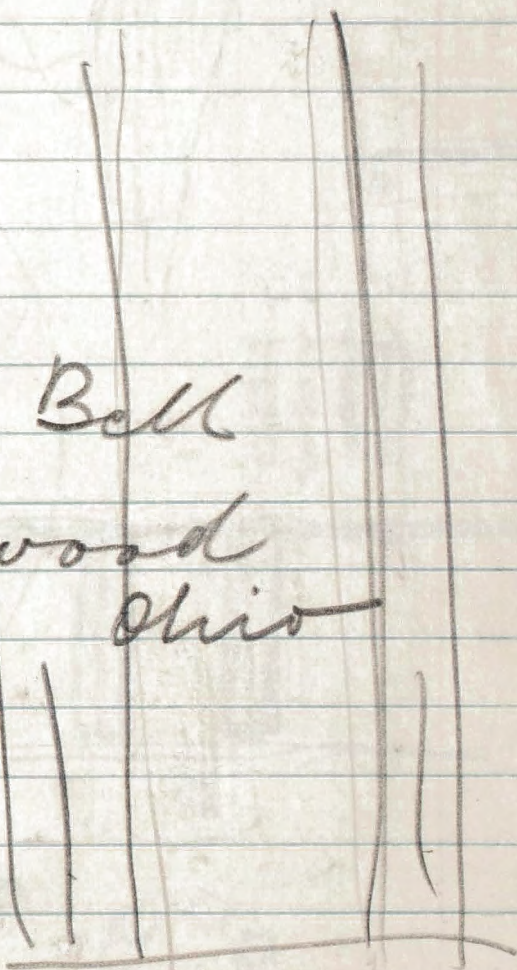 Bell
wood
Ohio